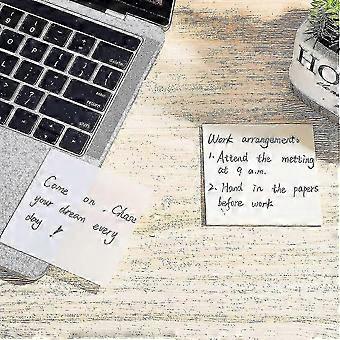 Come on, Chase
your dream every
day!
Work arrangements
1. Attend the metting
at 9 a.m.
2. Hand in the papers
before work
HO